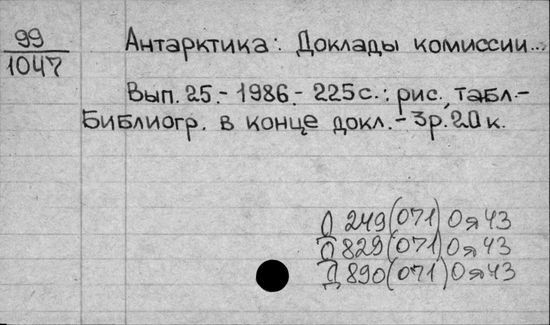 99
1047
Антарктика: Доклады комиссии...
Вып. 25.- 1986.- 225 с.: рис., табл.-
Библиогр. в конце докл.- 3р.20к.
Д 249(071) Оя43
Д 829(071) Оя43
Д 890(071) Оя43